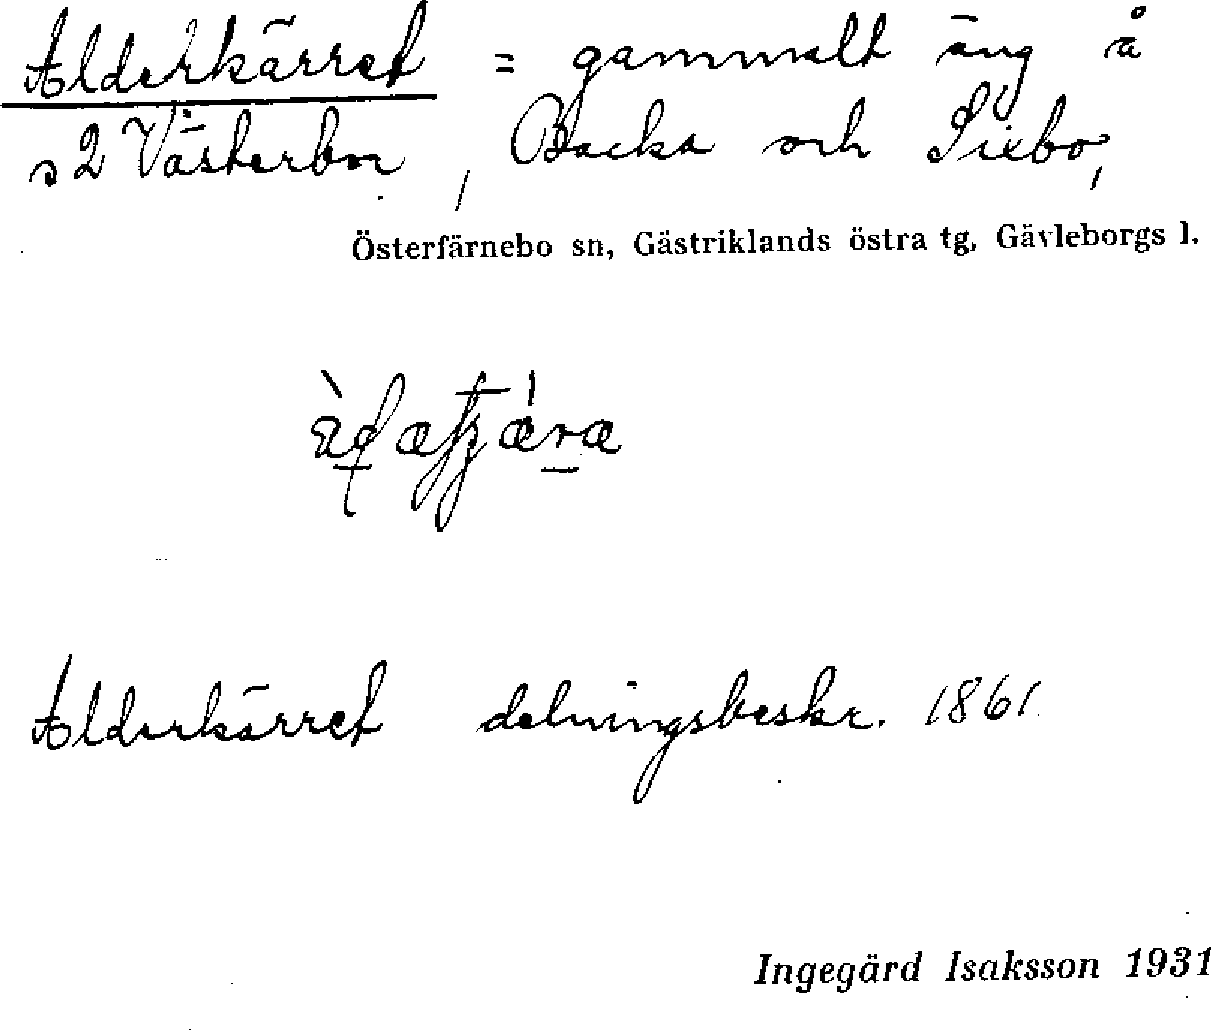 Alderkärret = gammalt äng å
s2 Västerbor, Backa och Sixbo,
Österfärnebo sn, Gästriklands östra tg, Gävleborgs l.
Alderkärret delningsbeskr. 1861
Ingegärd Isaksson 1931